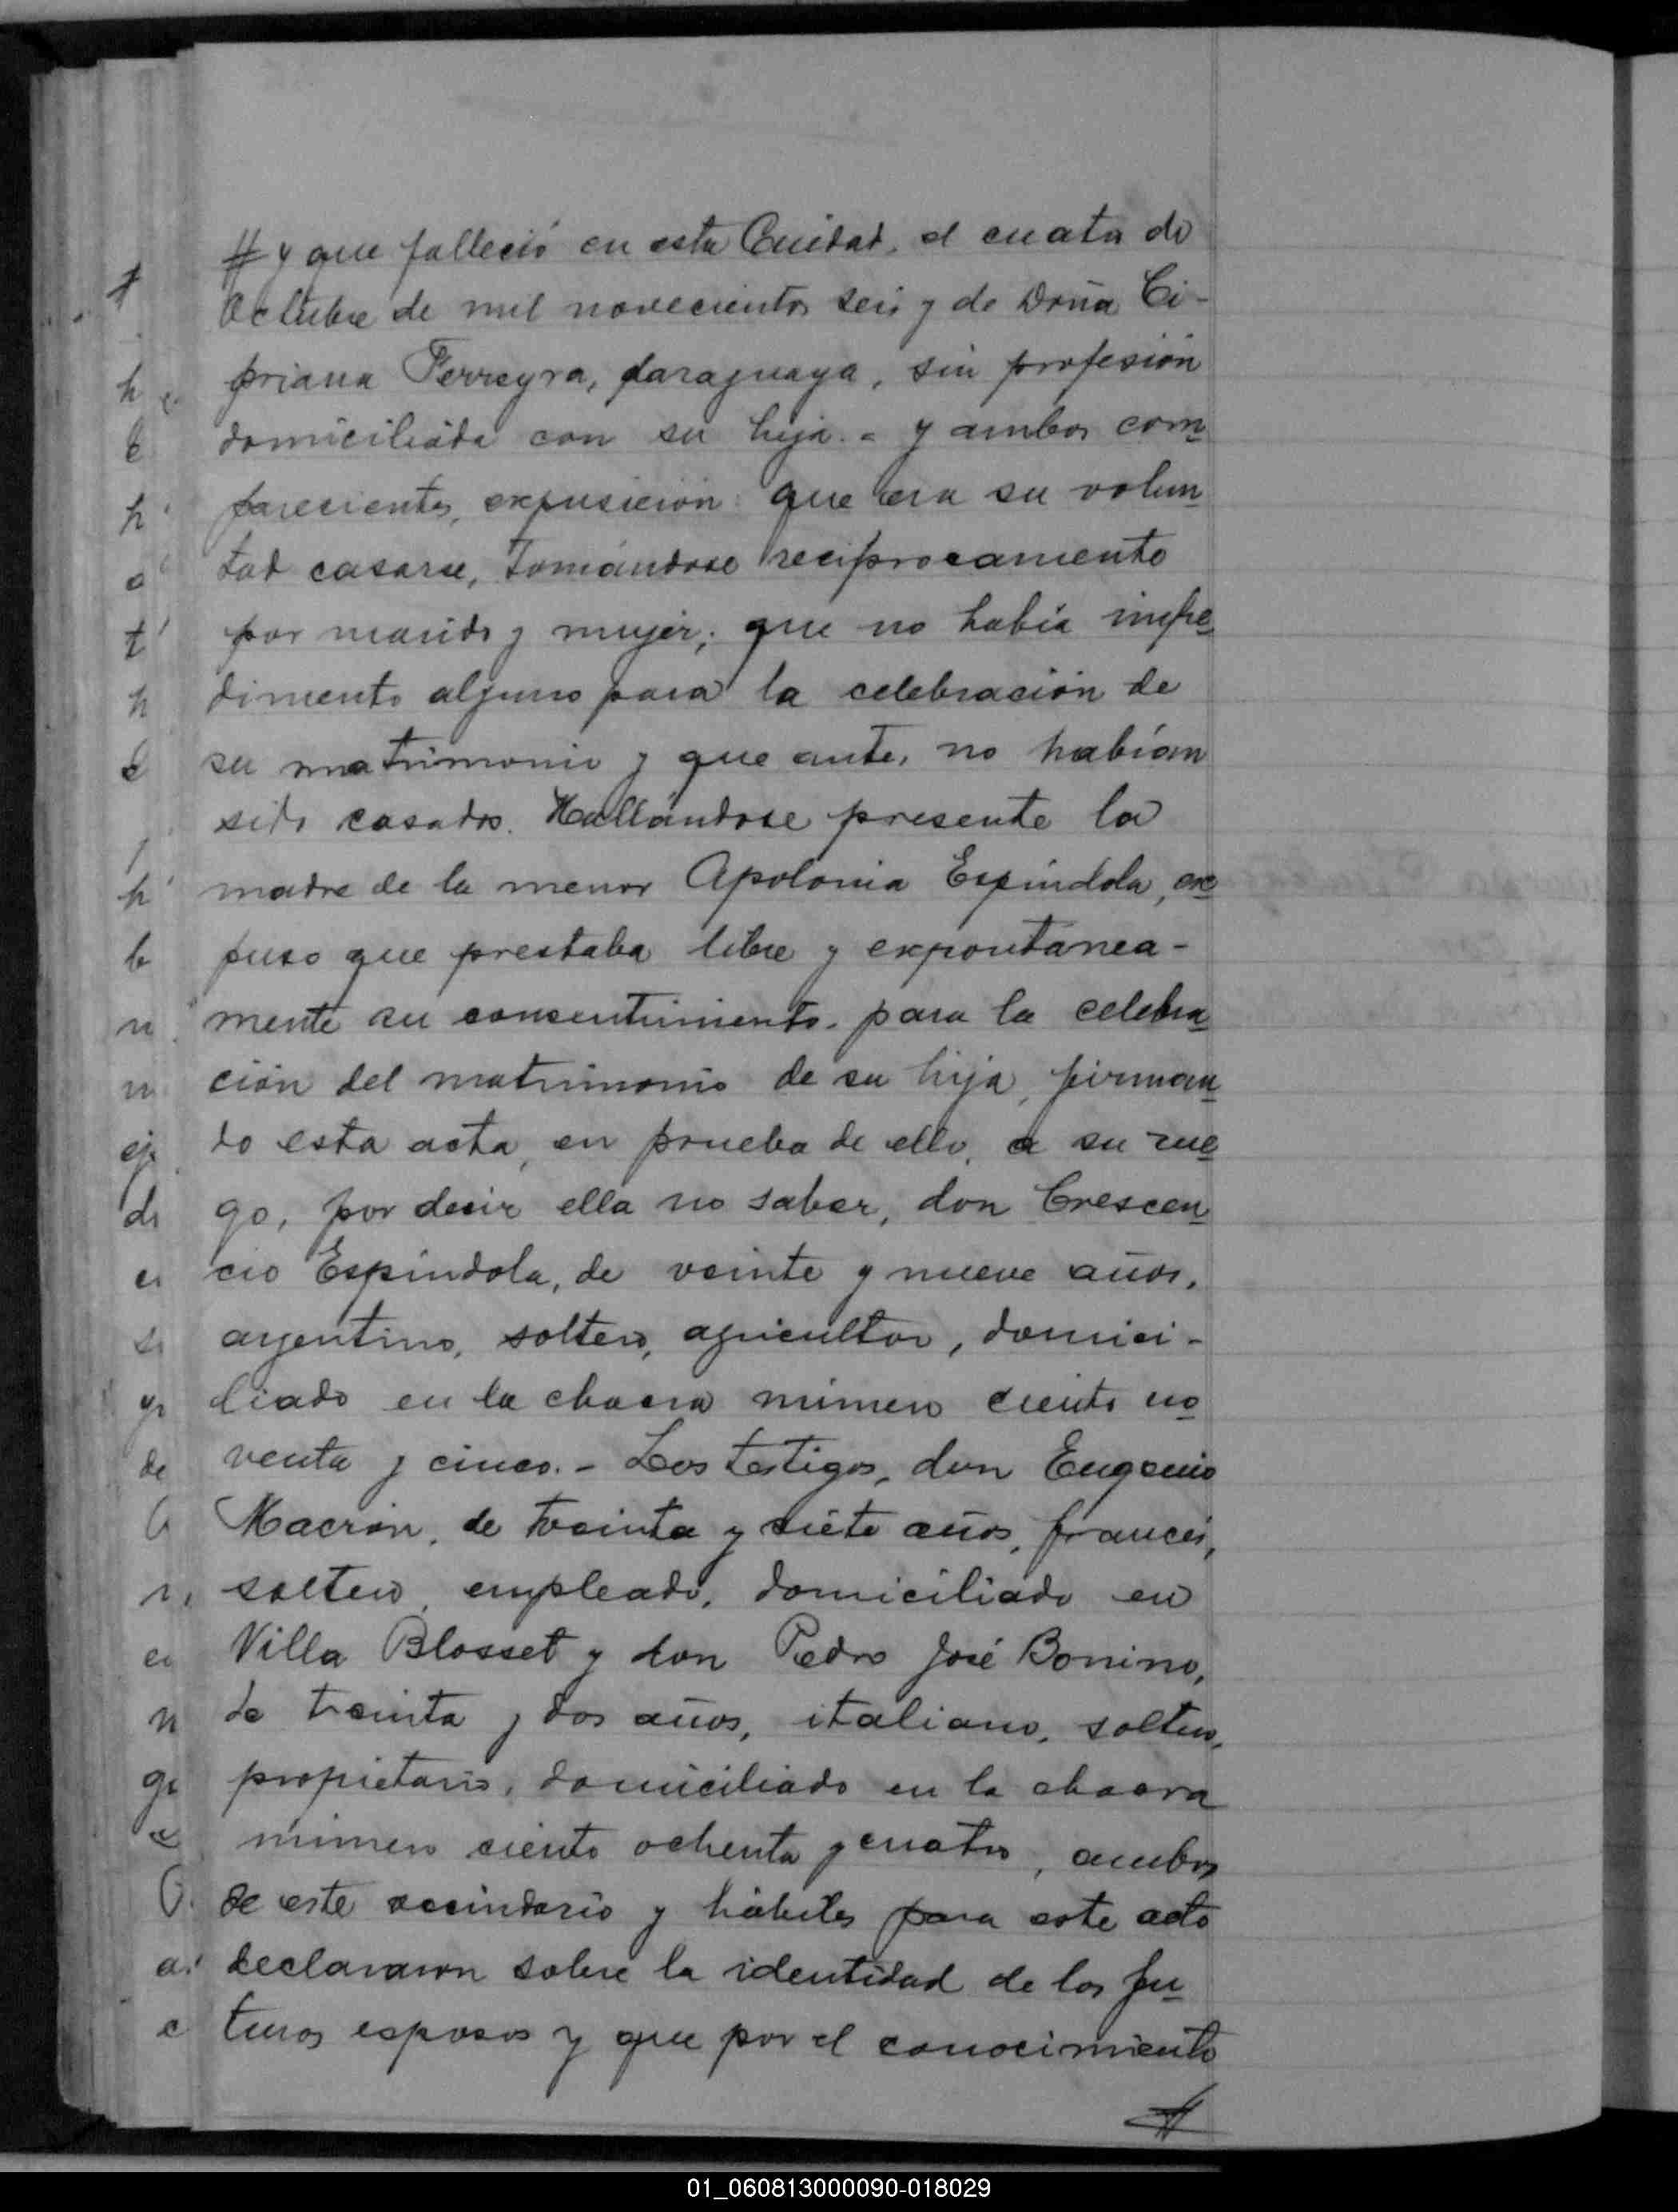 # y que falleció en esta Ciudad, el cuatro de
Octubre de mil novecientos seis y de Doña Ci-
priana Ferreyra, paraguaya, sin profesión
domiciliada con su hija. - y ambos com
parecientes, expusieron: que era su volun
tad casarse, tomándose reciprocamente
por marido y mujer; que no había impe
dimento alguno para la celebración de
su matrimonio y que antes no habían
sido casados. Hallándose presente la
madre de la menor Apolonia Espíndola, ex
puso que prestaba libre y expontanea-
mente su consentimiento para la celebra
ción del matrimonio de su hija, firman
do esta acta, en prueba de ello, a su rue
go, por decir ella no saber, don Crescen
cio Espíndola, de veinte y nueve años,
argentino, soltero, agricultor, domici-
liado en la chacra número ciento no
venta y cinco. - Los testigos, don Eugenio
Macrón, de treinta y siete años, francés,
soltero, empleado, domiciliado en
Villa Blosset y don Pedro José Bonino,
de treinta y dos años, italiano, soltero,
propietario, domiciliado en la chacra
número ciento ochenta y cuatro, ambos
de este vecindario y hábiles para este acto
declararon sobre la identidad de los fu
turos esposos y que por el conocimiento
01_060813000090-018029